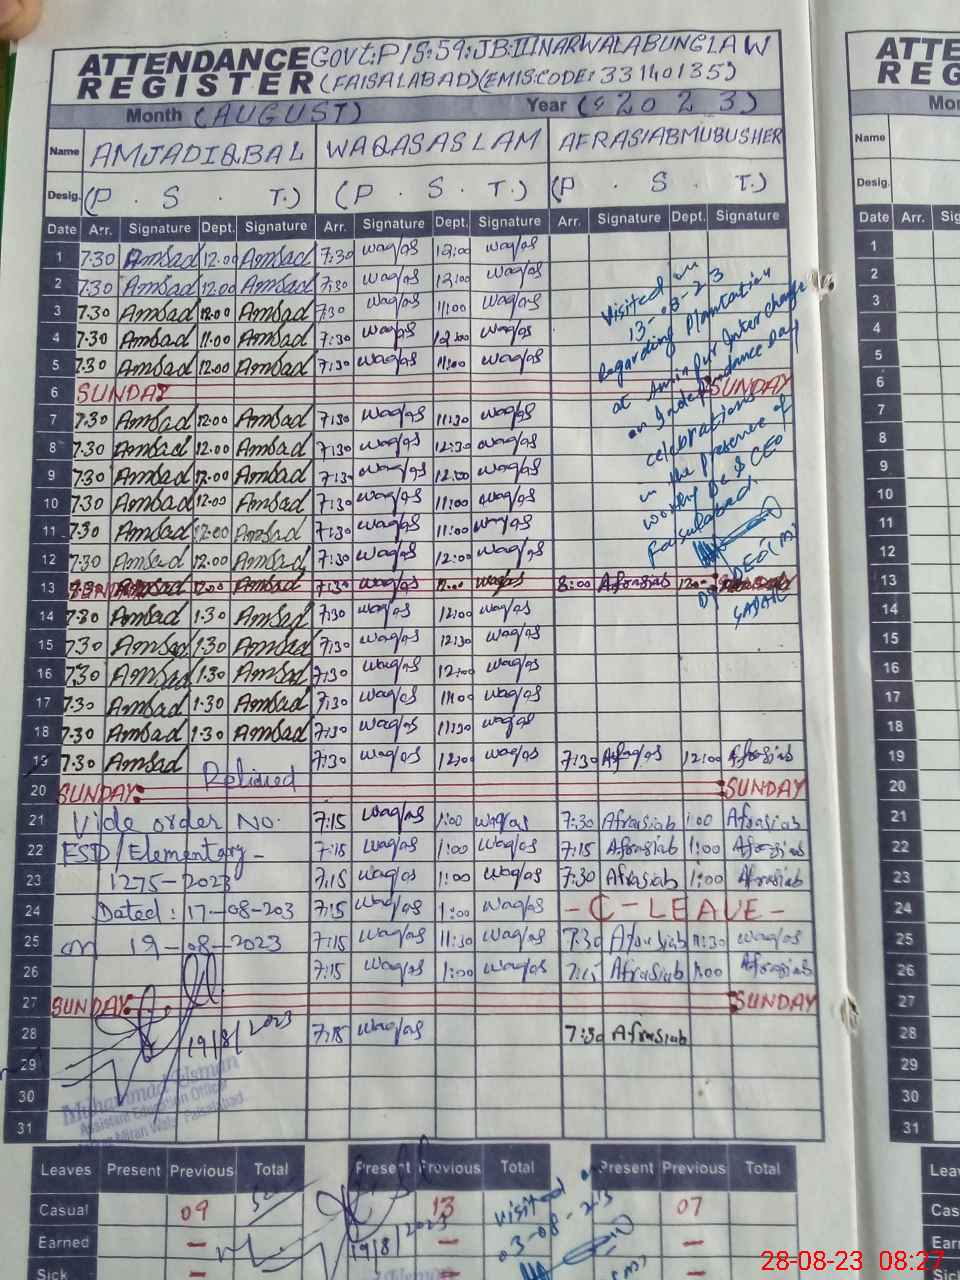 ATTENDANCE GOVT:P/S:59:JB:IIINARWALABUNGLAW
REGISTER (FAISALABAD)(EMISCODE:33140135)
Month (AUGUST) Year (2023)
Name AMJADIQBAL WAQASASLAM AFRASIABMUBUSHER
Desig. (P. S. T.) (P. S. T.) (P. S. T.)
Date Arr. Signature Dept. Signature Arr. Signature Dept. Signature Arr. Signature Dept. Signature
1 7:30 Amsad 12.00 Amsad 7:30 waqas 12:00 waqas
2 7:30 Amsad 12.00 Amsad 7:30 waqas 12:00 waqas
3 7.30 Amsad 12.00 Amsad 7:30 waqas 11:00 waqas
4 7.30 Amsad 11.00 Amsad 7:30 waqas 12:00 waqas
5 7.30 Amsad 12.00 Amsad 7:30 waqas 11:00 waqas
6 SUNDAY SUNDAY
7 7.30 Amsad 12.00 Amsad 7:30 waqas 11:30 waqas
8 7.30 Amsad 12.00 Amsad 7:30 waqas 12:30 waqas
9 7.30 Amsad 12.00 Amsad 7:30 waqas 12:00 waqas
10 7.30 Amsad 12.00 Amsad 7:30 waqas 11:00 waqas
11 7.30 Amsad 12.00 Amsad 7:30 waqas 11:00 waqas
12 7.30 Amsad 12.00 Amsad 7:30 waqas 12:00 waqas
13 Amsad 12.00 Amsad 7:30 waqas waqas 8:00 Afrasiab
14 7.30 Amsad 1.30 Amsad 7:30 waqas 12:00 waqas
15 7.30 Amsad 1.30 Amsad 7:30 waqas 12:30 waqas
16 7.30 Amsad 1.30 Amsad 7:30 waqas 12:00 waqas
17 7.30 Amsad 1.30 Amsad 7:30 waqas 11:00 waqas
18 7.30 Amsad 1.30 Amsad 7:30 waqas 11:30 waqas
19 7.30 Amsad 7:30 waqas 12:00 waqas 7:30 12:00 Afrasiab
Relieved
20 SUNDAY SUNDAY
21 Vide order No. 7:15 waqas 1:00 waqas 7:30 Afrasiab 1:00 Afrasiab
22 ESD/Elementary- 7:15 waqas 1:00 waqas 7:15 Afrasiab 1:00 Afrasiab
23 1275-2023 7:15 waqas 1:00 waqas 7:30 Afrasiab 1:00 Afrasiab
24 Dated: 17-08-203 7:15 waqas 1:00 waqas -C-LEAVE-
25 on 19-08-2023 7:15 waqas 11:30 waqas 7:30 Afrasiab 11:30 waqas
26 7:15 waqas 1:00 waqas 7:15 Afrasiab 1:00 Afrasiab
27 SUNDAY SUNDAY
28 7:15 waqas 7:30 Afrasiab
19/8/2023
29
30
31
Muhammad Usman
Assistant Education Officer
Miran Wala Faisalabad
Visited on
13-08-23
Regarding Plantation
at Aminpur Interchange
on Independance Day
celebrations
in the presence of
worthy DC & CEO
Faisalabad.
DEO(M)
SADAR
Leaves Present Previous Total Present Previous Total Present Previous Total
Casual 09 13 07
Earned - -
Sick - - -
19/8/2023
Visited on
03-08-23
ATTE
REG
Mon
Name
Desig.
Date Arr. Sig
1
2
3
4
5
6
7
8
9
10
11
12
13
14
15
16
17
18
19
20
21
22
23
24
25
26
27
28
29
30
31
Leav
Cas
Ear
Sick
28-08-23 08:27